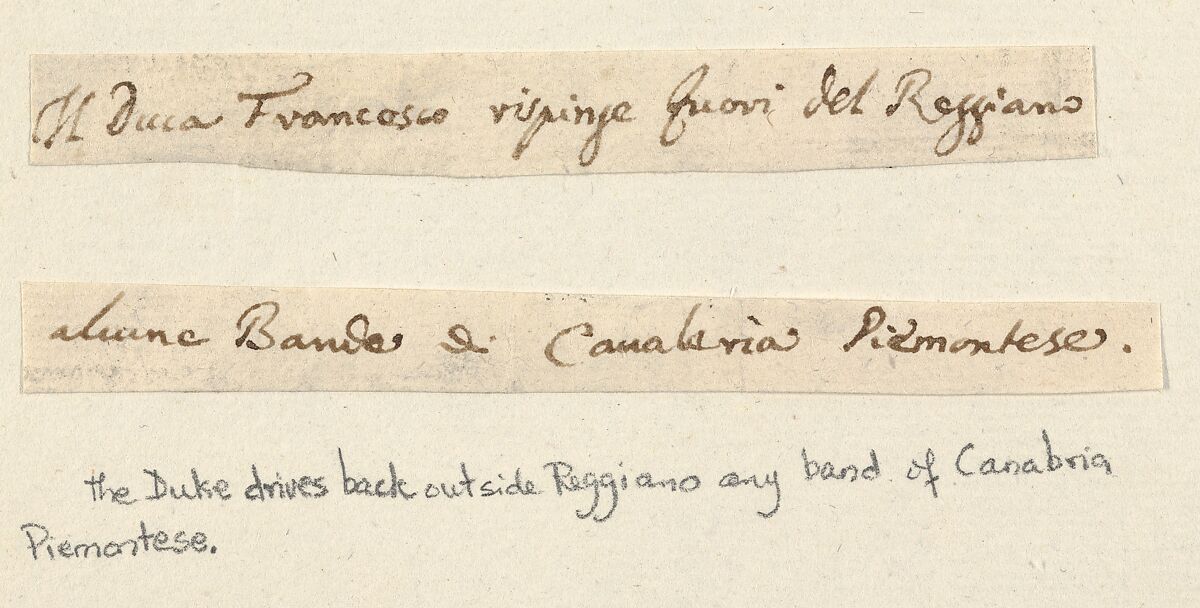 Il Duca Francesco rispinge fuori del Reggiano
alcune Bande di Caualeria Piemontese.
the Duke drives back outside Reggiano any band of Canabria
Piemontese.